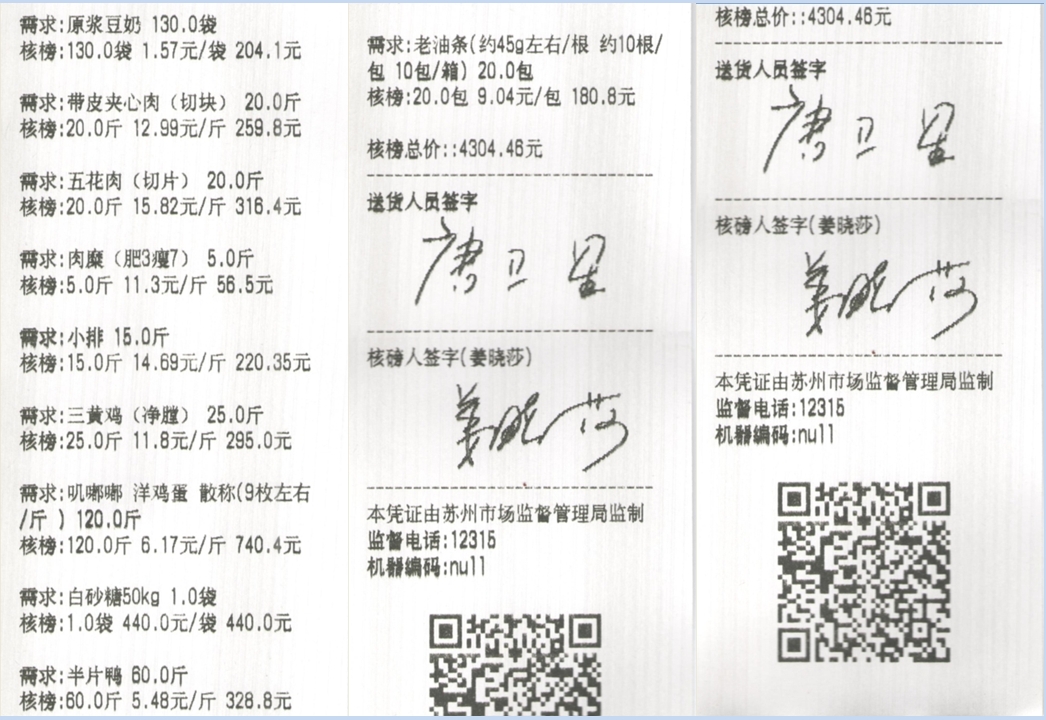 需求:原浆豆奶 130.0袋
核榜:130.0袋 1.57元/袋 204.1元
需求:带皮夹心肉（切块） 20.0斤
核榜:20.0斤 12.99元/斤 259.8元
需求:五花肉（切片） 20.0斤
核榜:20.0斤 15.82元/斤 316.4元
需求:肉糜（肥3瘦7） 5.0斤
核榜:5.0斤 11.3元/斤 56.5元
需求:小排 15.0斤
核榜:15.0斤 14.69元/斤 220.35元
需求:三黄鸡（净膛） 25.0斤
核榜:25.0斤 11.8元/斤 295.0元
需求:叽嘟嘟 洋鸡蛋 散称(9枚左右
/斤 ) 120.0斤
核榜:120.0斤 6.17元/斤 740.4元
需求:白砂糖50kg 1.0袋
核榜:1.0袋 440.0元/袋 440.0元
需求:半片鸭 60.0斤
核榜:60.0斤 5.48元/斤 328.8元
需求:老油条(约45g左右/根 约10根/
包 10包/箱) 20.0包
核榜:20.0包 9.04元/包 180.8元
核榜总价::4304.46元
送货人员签字
唐卫星
核磅人签字(姜晓莎)
姜晓莎
本凭证由苏州市场监督管理局监制
监督电话:12315
机器编码:null
核榜总价::4304.46元
送货人员签字
唐卫星
核磅人签字(姜晓莎)
姜晓莎
本凭证由苏州市场监督管理局监制
监督电话:12315
机器编码:null